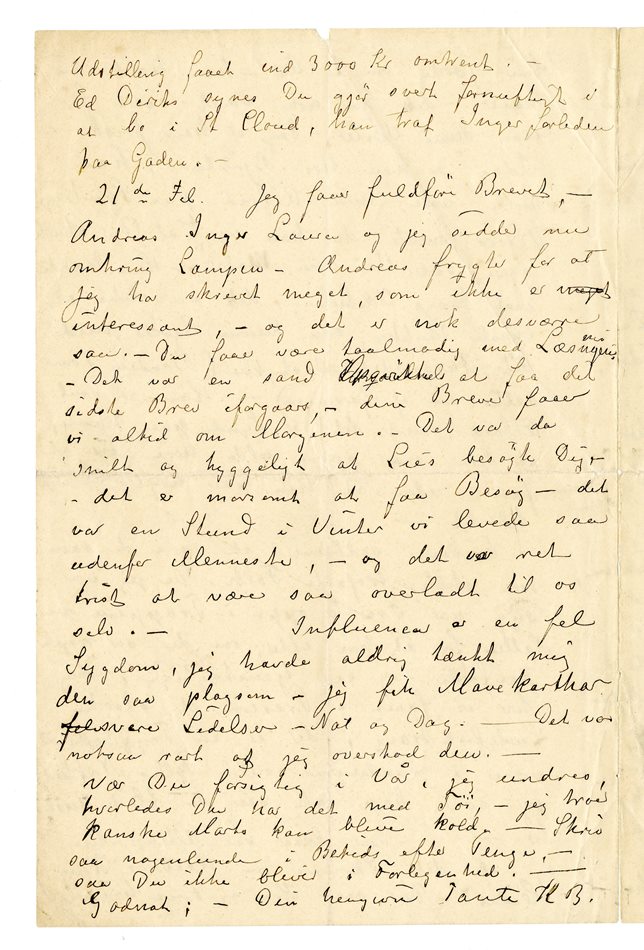 Udstilling faaet ind 3000 Kr omtrent. –
Ed Diriks synes Du gjör svært fornuftigt i
at bo i St Cloud, han traf Inger forleden
paa Gaden. –
21de Feb. Jeg faar fuldföre Brevet, –
Andreas Inger Laura og jeg sidde nu
omkring Lampen – Andreas frygter for at
jeg har skrevet meget, som ikke er meget
interessant, – og det er nok desværre
saa. – Du faar være taalmodig med Læsningen,
– Det var en sand at faa det
sidste Brev iforgaars, – dine Breve faaer
vi altid om Morgenen. – Det var da
snilt og hyggeligt at Lies besögte Dig, –
– det er morsomt at faa Besög – det
var en Stund i Vinter vi levede saa
udenfor Menneske, – og det var ret
trist at være saa overladt til os
selv. – Influenca er en fel
Sygdom, jeg havde aldrig tænkt mig
den saa plagsom – jeg fik Mavekarthar
svære Lidelser – Nat og Dag. – Det var
noksaa rart at jeg overstod den. –
Vær Du forsigtig i Vår, jeg undres,
hvorledes Du har det med Töi, – jeg tror
kanske Marts kan blive kold. – Skriv
saa nogenlunde i Beteds efter Penge, –
saa Du ikke bliver i Forlegenhed. –
Godnat; – Din hengivne Tante K B.